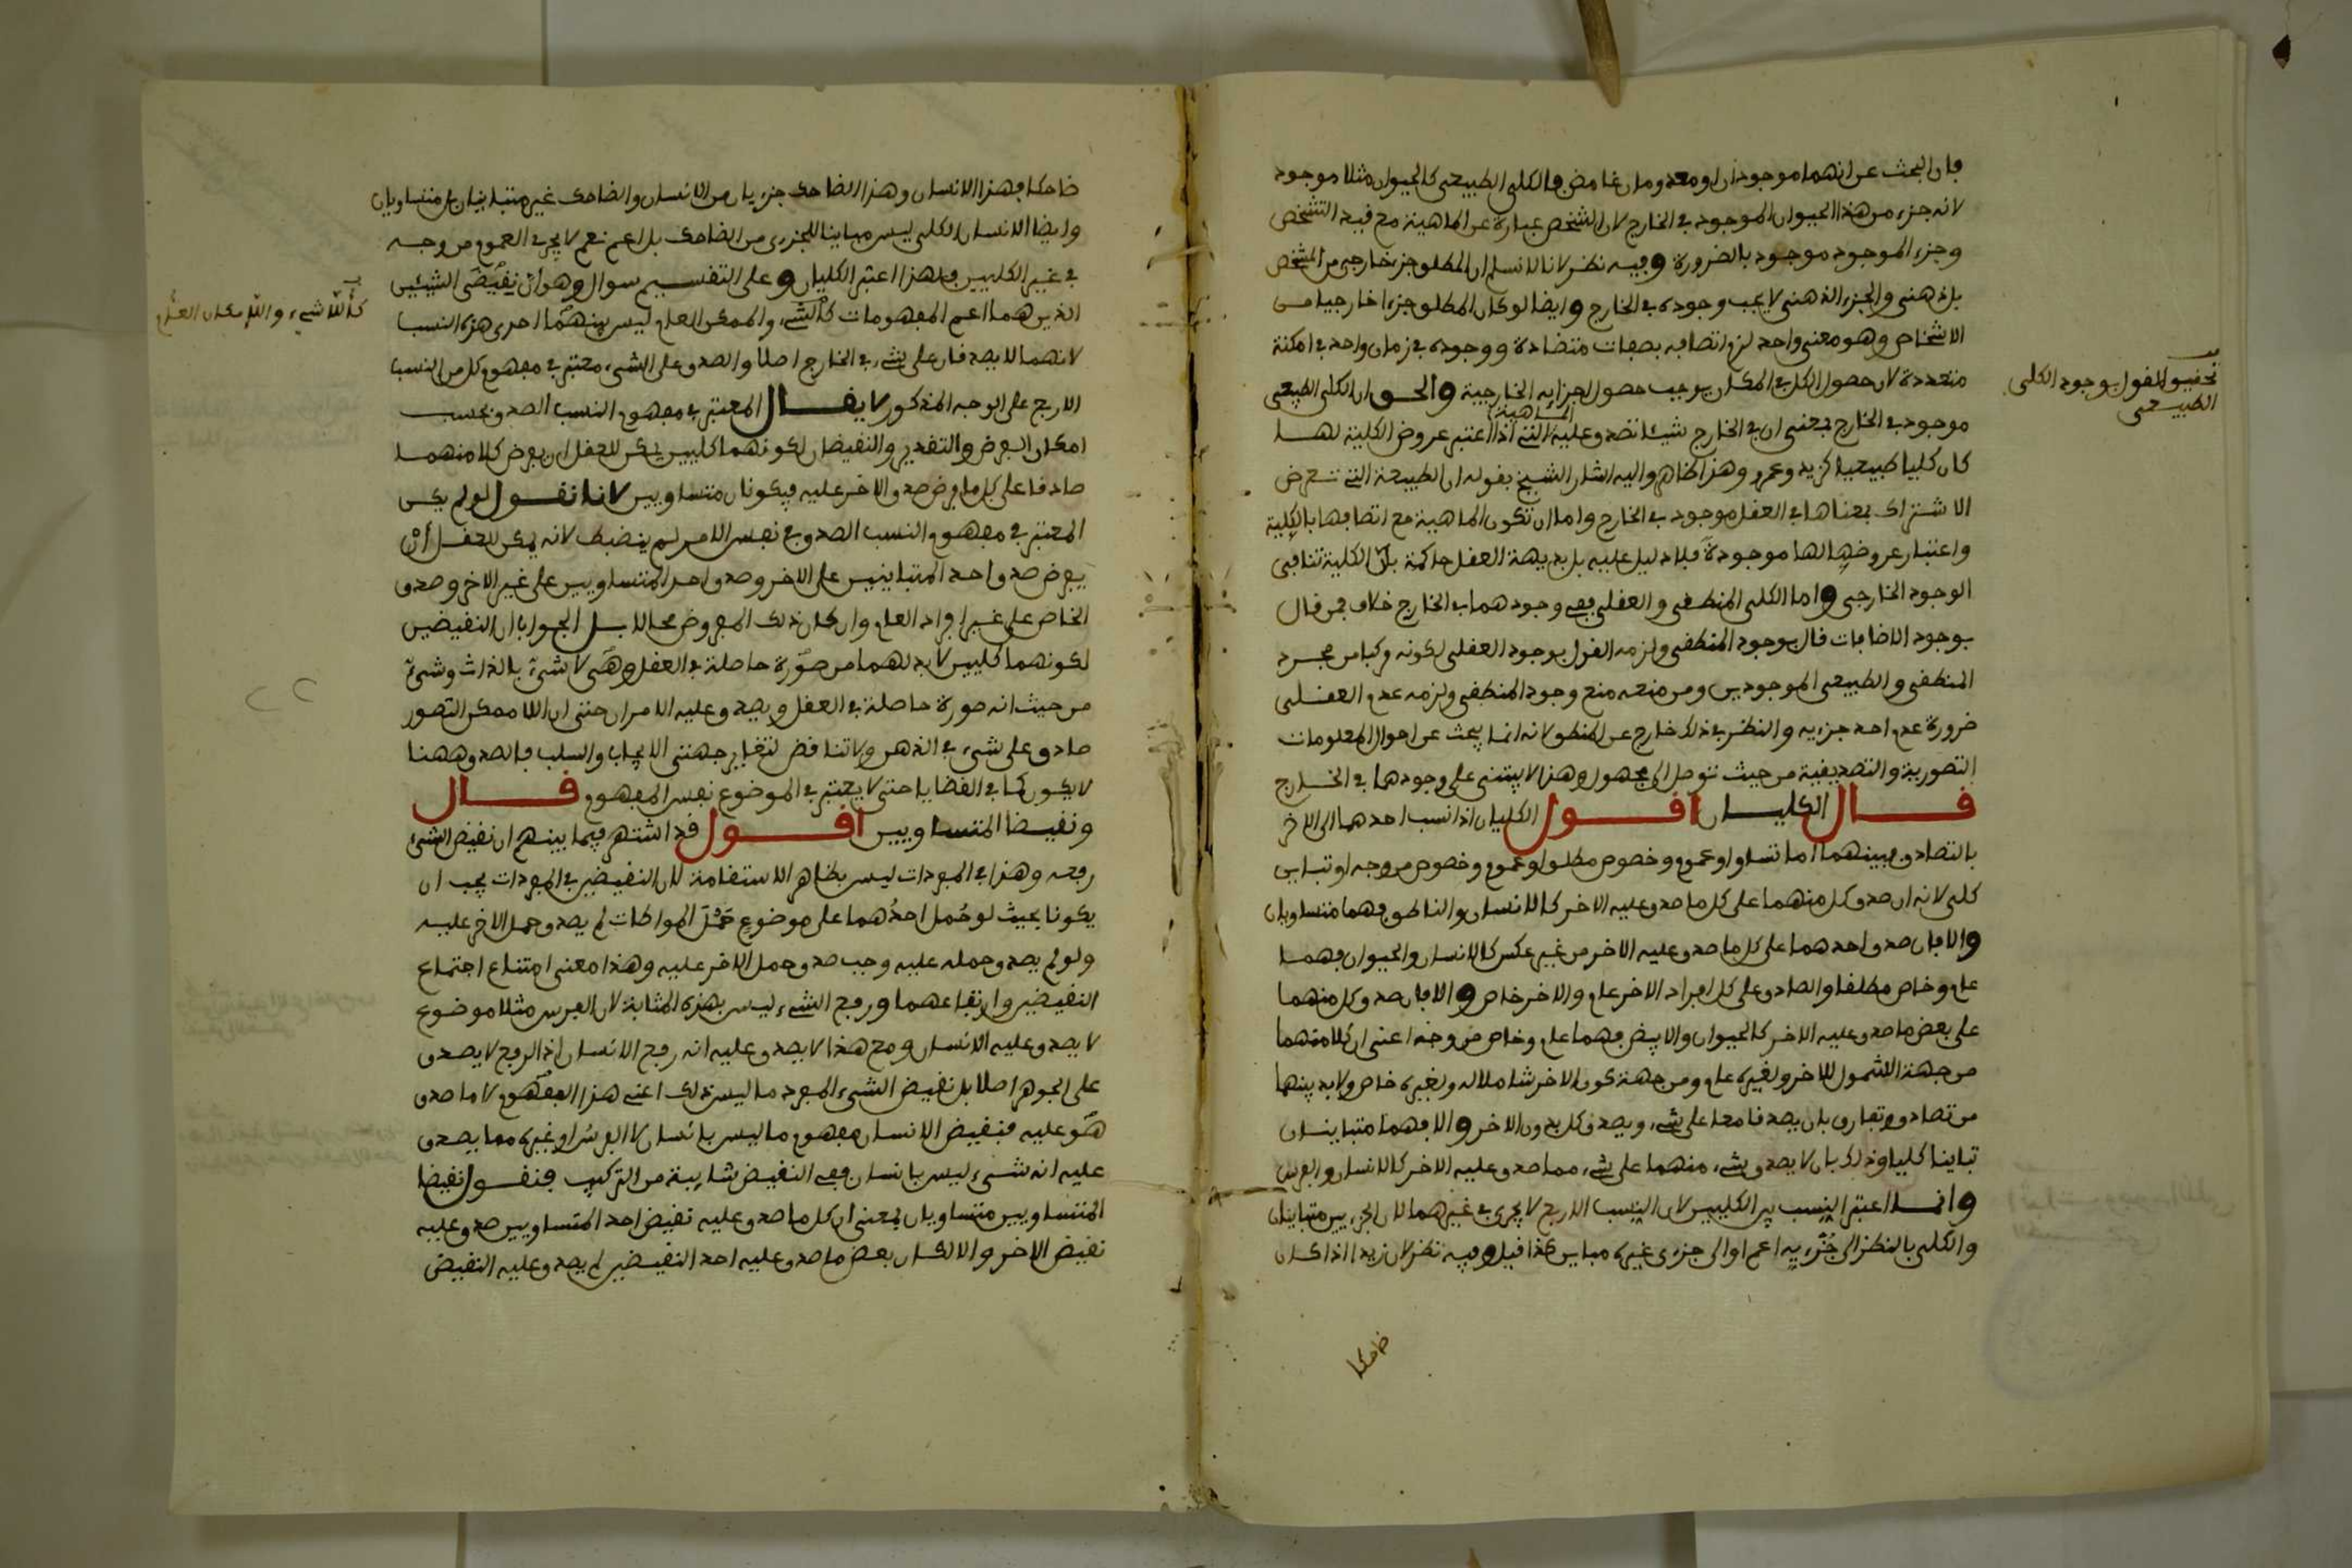 فان البحث عن انهما موجودان او معدومان غامض فالكلي الطبيعي كالحيوان مثلا موجود
لانه جزء من هذا الحيوان الموجود في الخارج لان الشخص عبارة عن الماهية مع قيد التشخص
وجزء الموجود موجود بالضرورة وفيه نظر لانا لا نسلم ان المطلق جزء خارجي من الشخص
بل ذهني والجزء الذهني لا يجب وجوده في الخارج وايضا لو كان المطلق جزءا خارجيا من
الاشخاص وهو معنى واحد لزم اتصافه بصفات متضادة ووجوده في زمان واحد في امكنة
متعددة لان حصول الكل في المكان يوجب حصول اجزايه الخارجية والحق ان الكلي الطبيعي
تحقيق القول بوجود الكلي
الطبيعي
موجود في الخارج بمعنى ان في الخارج شيئا تصدق عليه الماهية التي اذا اعتبر عروض الكلية لها
كان كليا طبيعيا كزيد وعمرو وهذا ظاهر واليه اشار الشيخ بقوله ان الطبيعة التي تعرض
الاشتراك بمعناها في العقل موجود في الخارج واما ان تكون الماهية مع اتصافها بالكلية
واعتبار عروضها لها موجودة فلا دليل عليه بل بديهة العقل حاكمة بان الكلية تنافي
الوجود الخارجي واما الكلي المنطقي والعقلي ففي وجودهما في الخارج خلاف فمن قال
بوجود الاضافات قال بوجود المنطقي ولزمه القول بوجود العقلي لكونه مركبا من مجرد
المنطقي والطبيعي الموجودين ومن منعه منع وجود المنطقي ولزمه عدم العقلي
ضرورة عدم احد جزءيه والنظر في ذلك خارج عن المنطق لانه انما يبحث عن احوال المعلومات
التصورية والتصديقية من حيث توصل الى مجهول وهذا لا يبتني على وجودهما في الخارج
قال الكليان اقول الكليان اذا نسب احدهما الى الاخر
بالتصادق فبينهما اما تساو او عموم وخصوص مطلق او عموم وخصوص من وجه او تباين
كلي لانه ان صدق كل منهما على كل ما صدق عليه الاخر كالانسان والناطق فهما متساويان
والا فان صدق احدهما على كل ما صدق عليه الاخر من غير عكس كالانسان والحيوان فهما
عام وخاص مطلقا والصادق على كل افراد الاخر عام والاخر خاص والا فان صدق كل منهما
على بعض ما صدق عليه الاخر كالحيوان والابيض فهما عام وخاص من وجه اعني ان كلا منهما
من جهة الشمول للاخر ولغيره عام ومن جهة كون الاخر شاملا له ولغيره خاص ولا بد بينهما
من تصادق وتفارق بان يصدقا معا على شيء ويصدق كل بدون الاخر والا فهما متباينان
تباينا كليا وذلك بان لا يصدق شيء منهما على شيء مما صدق عليه الاخر كالانسان والفرس
وانما اعتبر النسب بين الكليين لان النسب الاربع لا يجري في غيرهما لان الجزءيين متباينان
والكلي بالنظر الى جزءيه اعم او الى جزءي غيره مباين كذا قيل وفيه نظر لان زيدا اذا كان
ضاحكا
ضاحكا فهذا الانسان وهذا الضاحك جزءيان من الانسان والضاحك غير متباينان بل متساويان
وايضا الانسان الكلي ليس مباينا للجزءي من الضاحك بل اعم نعم لا يجري العموم من وجه
في غير الكليين فلهذا اعتبر الكليان وعلى التقسيم سوال وهو ان نقيضي الشيئين
الذين هما اعم المفهومات كالشيء والممكن العام ليس بينهما احدى هذه النسب
كاللاشيء واللاإمكان العام
لانهما لا يصدقان على شيء في الخارج اصلا والصدق على الشيء معتبر في مفهوم كل من النسب
الاربع على الوجه المذكور لا يقال المعتبر في مفهوم النسب الصدق بحسب
امكان الفرض والتقدير والنقيضان لكونهما كليين يمكن للعقل ان يفرض كلا منهما
صادقا على كل ما فرض صدق الاخر عليه فيكونان متساويين لانا نقول لو لم يكن
المعتبر في مفهوم النسب الصدق في نفس الامر لم ينضبط لانه يمكن للعقل أن
يفرض صدق احد المتباينين على الاخر وصدق احد المتساويين على غير الاخر وصدق
الخاص على غير افراد العام وان كان ذلك المفروض محالا بل الجواب ان النقيضين
لكونهما كليين لا بد لهما من صورة حاصلة في العقل وهي لا شيء بالذات وشيء
من حيث انه صورة حاصلة في العقل ويصدق عليه الامران حتى ان اللا ممكن التصور
صادق على شيء في الذهن ولا تناقض لتغاير جهتي الايجاب والسلب فالصدق ههنا
لا يكون كما في القضايا حتى لا يعتبر في الموضوع نفس المفهوم قال
ونقيضا المتساويين اقول قد اشتهر فيما بينهم ان نقيض الشيء
رفعه وهذا في المفردات ليس بظاهر الاستقامة لان النقيضين في المفردات يجب ان
يكونا بحيث لو حُمل احدُهما على موضوع حَمْلَ المواطات لم يصدق حمل الاخر عليه
ولو لم يصدق حمله عليه وجب صدق حمل الاخر عليه وهذا معنى امتناع اجتماع
النقيضين وارتفاعهما ورفع الشيء ليس بهذه المثابة لان الفرس مثلا موضوع
لا يصدق عليه الانسان ومع هذا لا يصدق عليه انه رفع الانسان اذ الرفع لا يصدق
على الجوهر اصلا بل نقيض الشيء المفرد ما ليس ذلك اعني هذا المفهوم لا ما صدق
هو عليه فنقيض الانسان مفهوم ما ليس بانسان لا الفرس او غيره مما يصدق
عليه انه شيء ليس بانسان ففي النقيض شايبة من التركيب فنقول نقيضا
المتساويين متساويان بمعنى ان كل ما صدق عليه نقيض احد المتساويين صدق عليه
نقيض الاخر والا لكان بعض ما صدق عليه احد النقيضين لم يصدق عليه النقيض